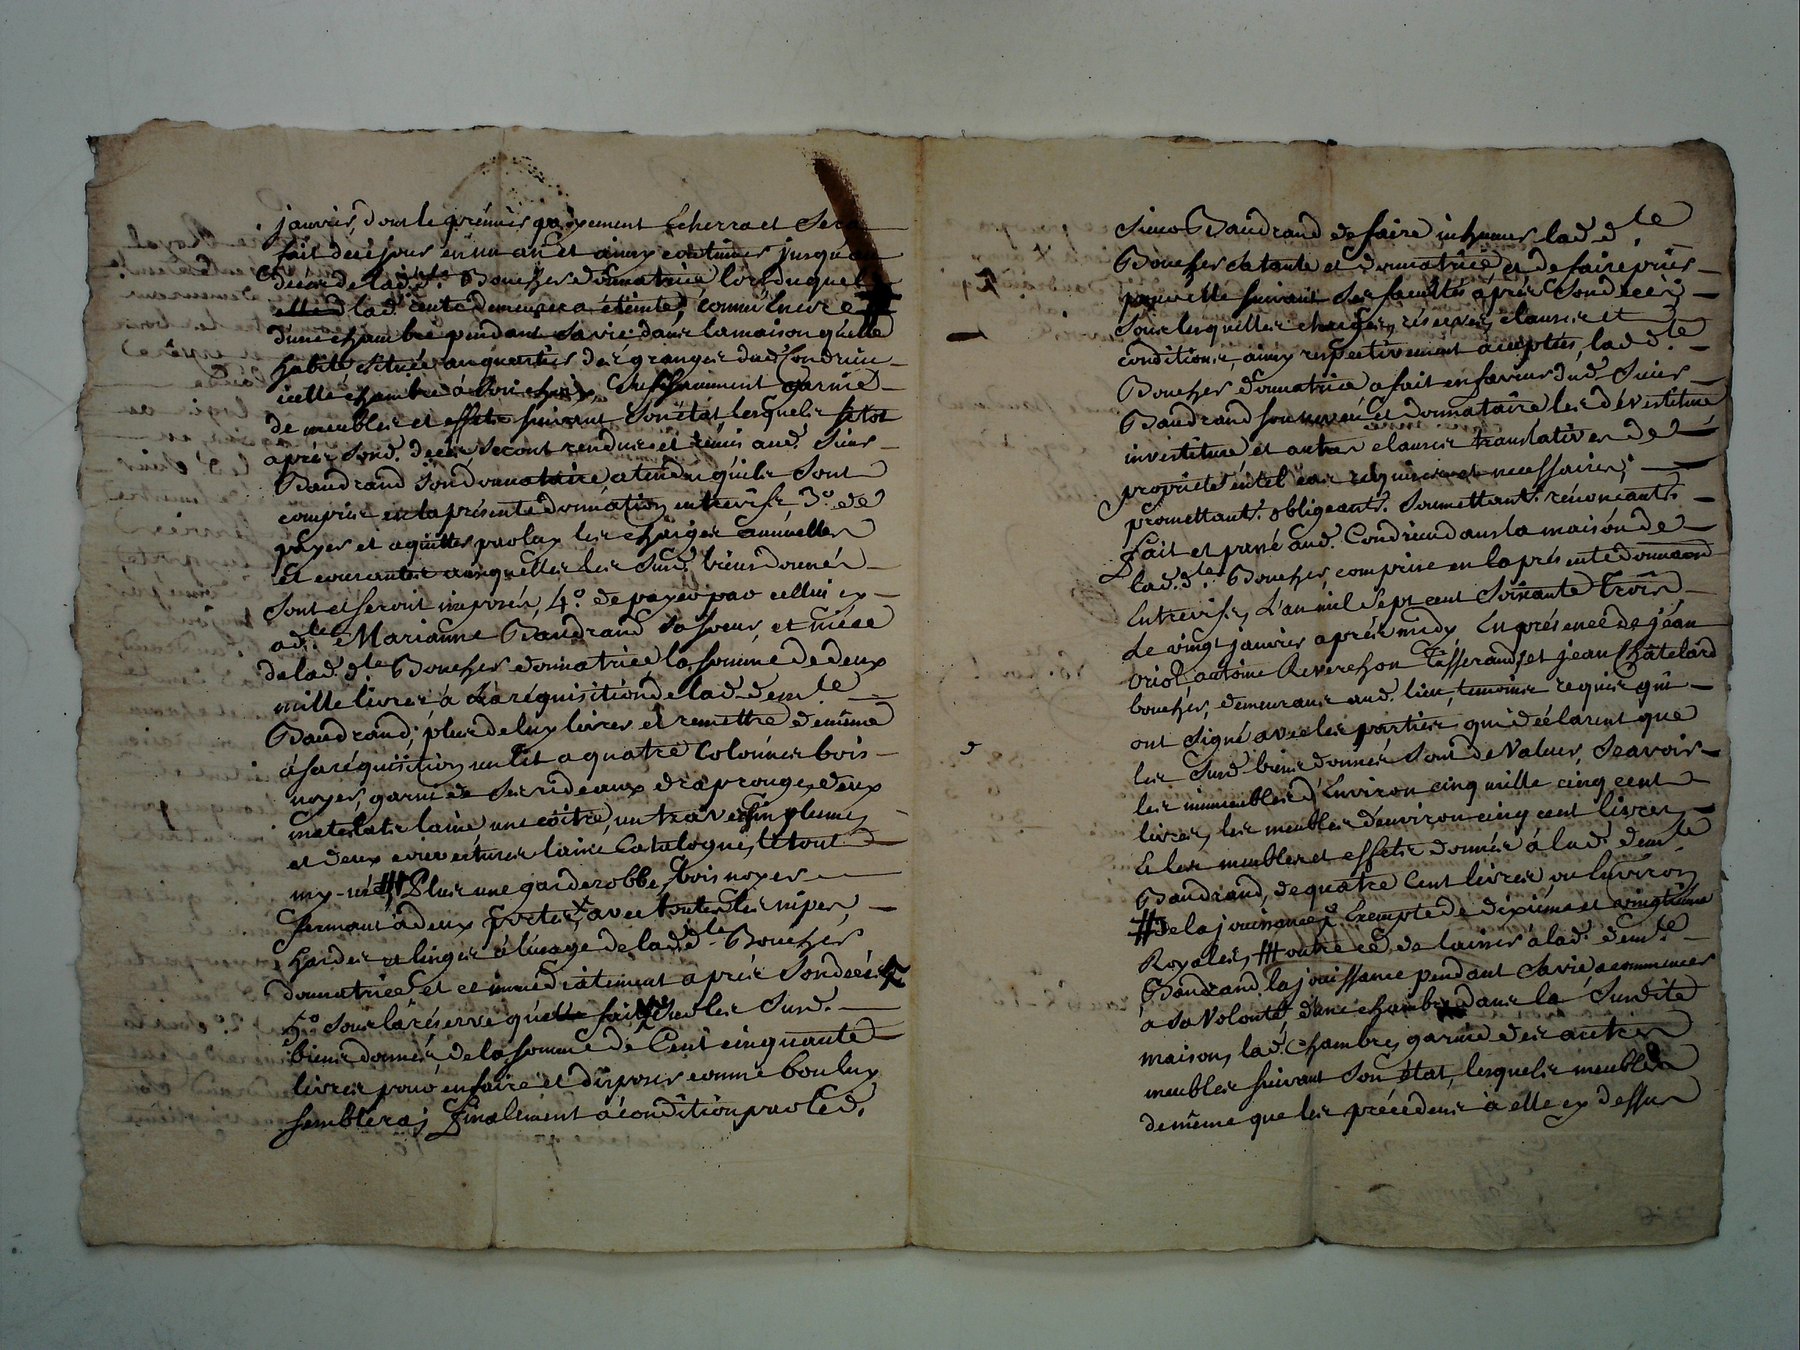 janvier, dont le prémier payement Echerra et Sera
fait de ce jour en un an et ainsy continuer jusquau
Décès de lad. dlle Boucher donnatrice, lors duquel
lad. rente demeurera éteinte, comme Encore
dune chambre pendant sa vie dans la maison quelle
habite située au quartier des granges dud. Condrieu
icelle chambre a son choix, Suffisamment garnie
de meubles et effets suivant son état, lesquels sitot
après sond. decès seront rendus et remis aud. Sieur
Baudrand Son donnataire atendu quils sont
compris en la présente donnation entrevifs 3.° de
payer et aquitter par luy les charges annuelles
et courantes auxquelles les Susd. biens donnés
sont et seront imposés, 4.° de payer par celluy cy
ad. dlle Marianne Baudrand sa soeur, et niéce
de lad. dlle Boucher donnatrice la somme de deux
mille livres à la réquisition de lad. demlle
Baudrand; plus de luy livrer et remettre de même
à sa réquisition un lit a quatre Colonnes bois
noyer, garni de ses rideaux drap rouge, deux
matelats laine, une coître, un traversin plume,
et deux couvertures laine Catalogne, le tout
my-usé # Plus une garderobbe, bois noyer
fermant à deux portes, avec toutes les nipes,
hardes et linges à lusage de lad. dlle Boucher
donnatrice et ce immédiatement après son decés
5.° sous la réserve quelle fait sur les Susd.
biens donnés de la somme de Cent cinquante
livres pour en faire et disposer comme bon luy
semblera; Finalement à condition par led.
Sieur Baudrand de faire inhumer lad. dlle
Boucher sa tante et donnatrice, et de faire prier
pour elle suivant ses facultés après son decés;
Sous lesquelles charges, réserves, clauses et
conditions, ainsy respectivement acceptées, lad. dlle
Boucher donnatrice a fait en faveur dud. Sieur
Baudrand son neveu et donnataire les dévestiture
investiture et autres clauses translatives de
propriété en tel cas requises et necessaires;
promettant. obligeant. soumettant. rénoncant.
Fait et passé aud. Condrieu dans la maison de
lad. dlle Boucher, comprise en la présente donnaon
Entrevifs, L'an mil sept cent soixante trois
Le vingt janvier après midy En présence de jean
antoine Reverchon Tisserand, et jean Châtelard
boucher, demeurans aud. lieu, temoins requis qui
ont signé avec les parties qui déclarent que
les Susd. biens donnés sont de Valeur, Scavoir
les immeubles d'Environ cinq mille cinq cent
livres, les meubles d'environ cinq cent livres
Et les meubles et effets donnés à lad. demlle
Baudrand, de quatre Cent livres ou Environ
# de la jouissance Exempte de dixieme et vingtieme
Royales, # outre ce, de laisser à lad. demlle
Baudrand la jouissance pendant sa vie a commencer
à sa Volonté d'une chambre dans la Susdite
maison, lad. Chambre, garnie des autres
meubles suivant son état, lesquels meubles
de même que les précédens à elle cy dessus